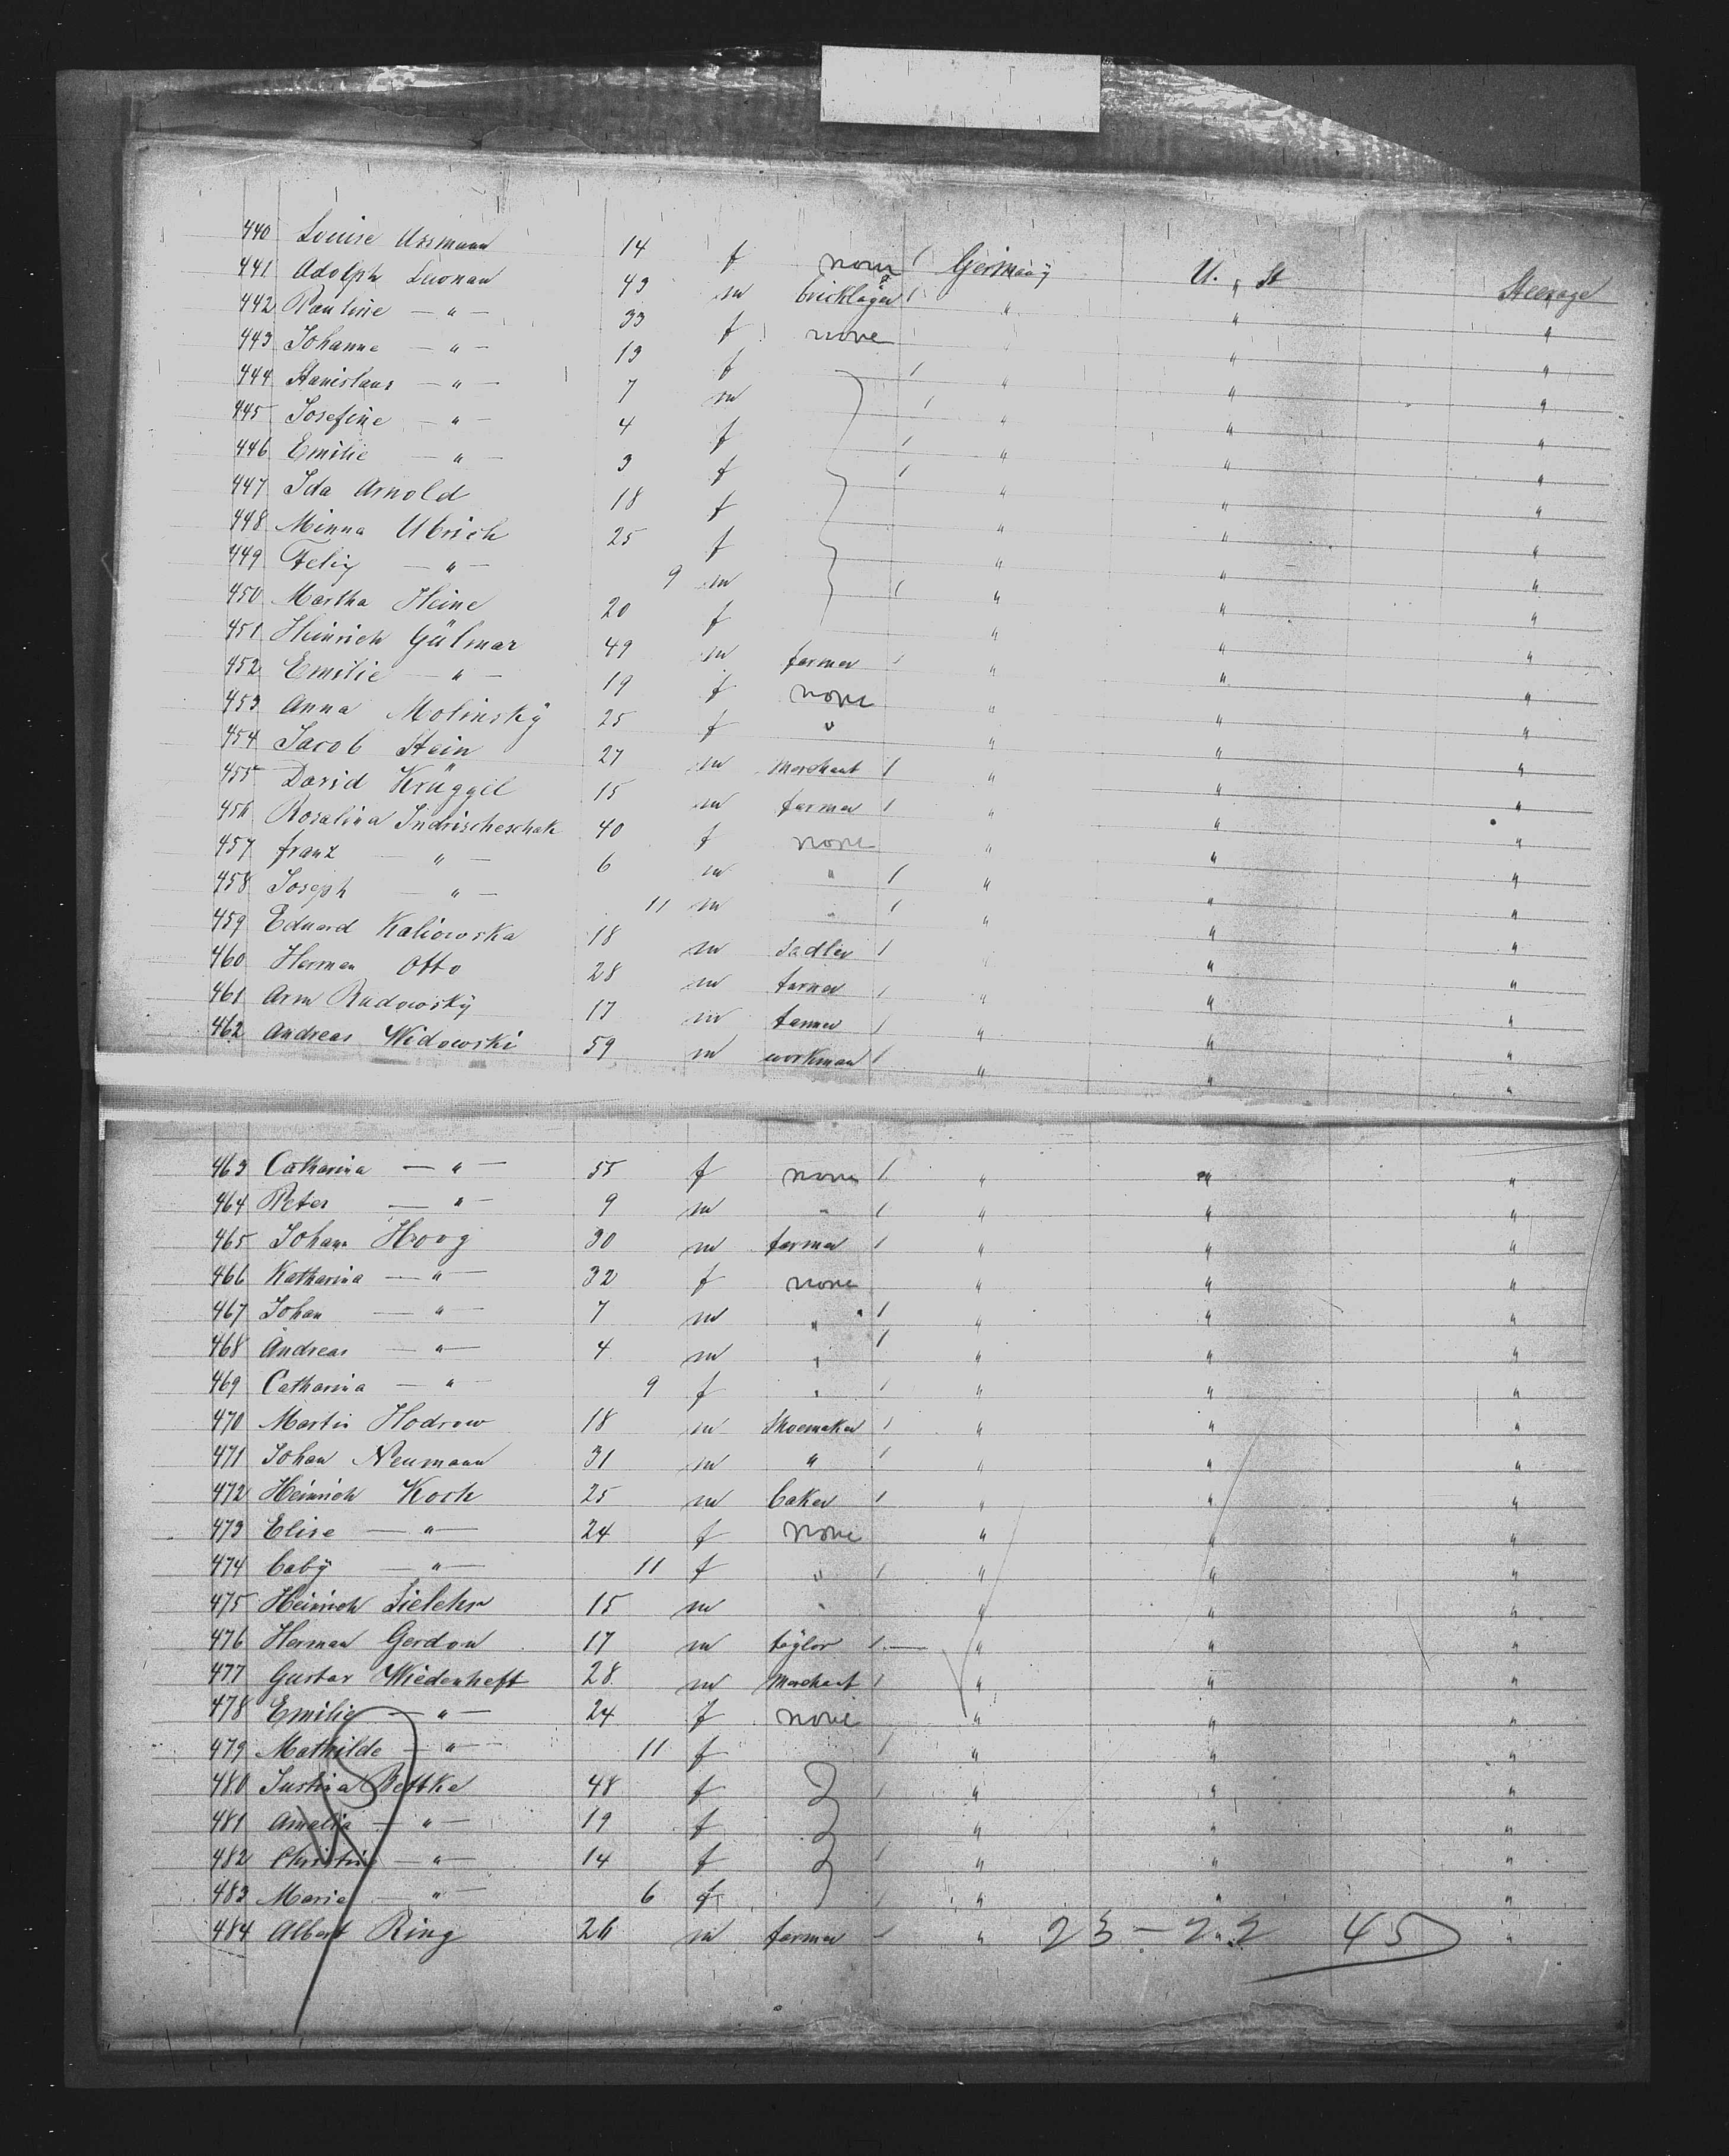 440 Louise Ussmann 14 f none / Germany U. St Steerage
441 Adolph 43 m bricklager / " " "
442 Pauline — " — 33 f none " "
443 Johanna — " — 13 f / " " "
444 Stanislaus — " — 7 m / " " "
445 Josefine — " — 4 f / " " "
446 Emilie — " — 3 f / " " "
447 Ida Arnold 18 f " " "
448 Minna Ulrich 25 f " " "
449 Felix — " — 9 m / " " "
450 Martha Heine 20 f " " "
451 Heinrich Gülmar 49 m farmer / " " "
452 Emilie — " — 19 f none " " "
453 Anna Molinsky 25 f " " " "
454 Jacob Stein 27 m Merchant / " " "
455 David Krüggel 15 m farmer / " " "
456 Rosalina Indrischeschak 40 f none " " "
457 franz — " — 6 m " / " " "
458 Joseph — " — 11 m " / " " "
459 Eduard Kaliowska 18 m Sadler / " " "
460 Herman Otto 28 m farmer / " " "
461 Arm Rudowsky 17 m farmer / " " "
462 Andreas Widowski 59 m workman / " " "
463 Catharina — " — 55 f none / " " "
464 Peter — " — 9 m " / " " "
465 Johann Hoog 30 m farmer / " " "
466 Katharina — " — 32 f none " " "
467 Johan — " — 7 m " / " " "
468 Andreas — " — 4 m " / " " "
469 Catharina — " — 9 f " / " " "
470 Martin Hodrow 18 m Shoemaker / " " "
471 Johan Neumann 31 m " / " " "
472 Heinrich Koch 25 m baker / " " "
473 Elise — " — 24 f none " " "
474 baby — " — 11 f " / " " "
475 Heinrich 15 m " " " "
476 Herman Gerdon 17 m taylor / — " " "
477 Gustav Wiedenheft 28 m Merchant / " " "
478 Emilie — " — 24 f none " " "
479 Mathilde — " — 11 f / " " "
480 Justina Bettke 48 f / " " "
481 Amalia — " — 19 f " " "
482 Christine — " — 14 f / " " "
483 Maria — " — 6 f / " " "
484 Albert Ring 26 m farmer / " 23 — 22 45 "